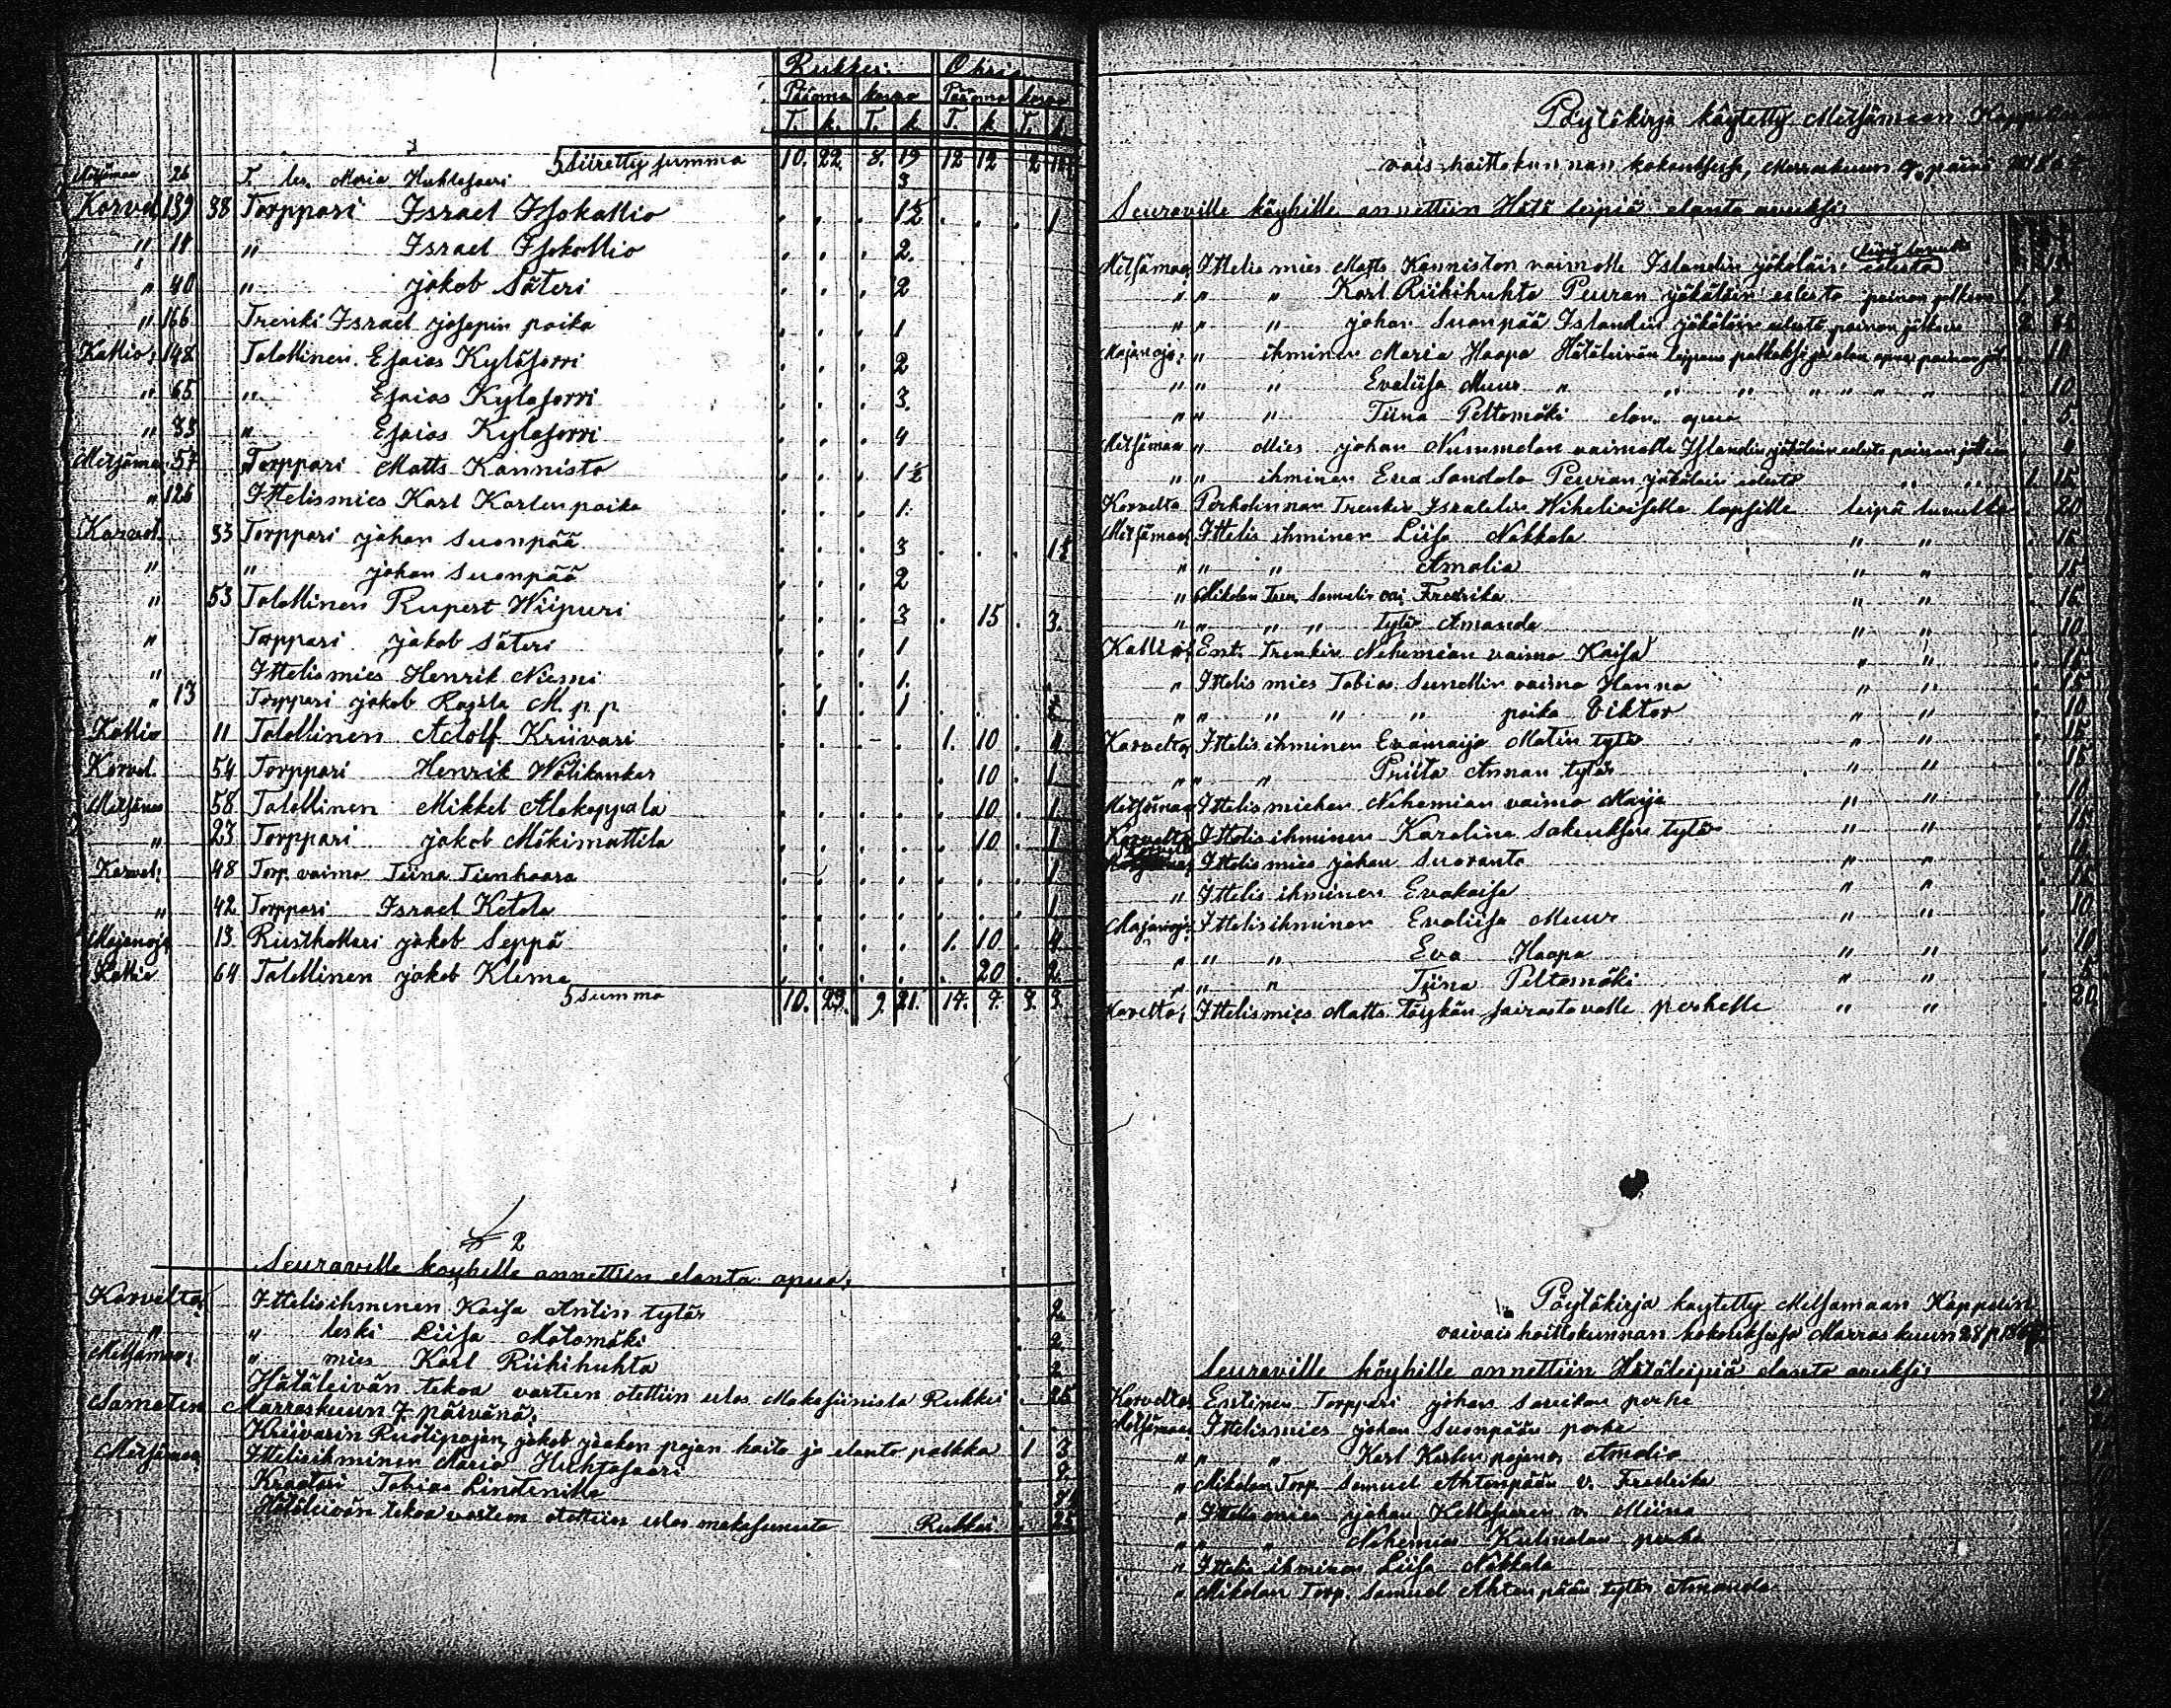 Rukkei. Ohria
Pääoma korko Pääoma korko
T. k. T. k. T. k. T. k.
Siiretty summa 10. 22. 8. 19 12 12 2
Metsämaa 26 T. les. Maria Huhtasaari 3
Korvel. 139 38 Torppari Israel Isokallio 1½ 1
" 14 " Israel Isokallio 2.
" 40 " jakob Säteri 2
" 166 Trenki Israel josepin poika 1
Kallio: 148 Talollinen Esaias Kyläsorri 2
" 65 " Esaias Kyläsorri 3.
" 83 " Esaias Kyläsorri 4
Metsämaa 57 Torppari Matts Kannisto 1½
" 126 Ittelismies Karl Karlen poika 1.
Korvel. 33 Torppari johan Suonpää 3
" " johan Suonpää 2
" 53 Talollinen Rupert Wiipuri 3 15 3.
" Torppari jakob Säteri 1
" Ittelismies Henrik Niemi 1.
" 13 Torppari jakob Rajala M. p p 1 1
Kallio 11 Talollinen Adolf Kriivari 1. 10 4
Korvel. 54 Torppari Henrik Wälikankas 10 1
Metsämaa 58 Talollinen Mikkel Alakoppala 10 1
" 23 Torppari jakob Mäkimattila 10 1
Korvel: 48 Torp. vaimo Tiina Tienhaara 1
" 42 Torppari Israel Ketola 1
Majanoja 13 Rusthollari jakob Seppä 1. 10 4
Kallio 64 Talollinen jakob Klema 20 2
Summa 10. 23. 9. 21. 14. 7. 3. 3.
2
Seuraville köyhille annettiin elanto apua;
Korvelta; Ittelisihminen Kaisa Antin tytär 2.
" " leski Liisa Mätomäki 2
Metsämaa; " mies Karl Riihihuhta 2
Hätäleivän tekoa varten otettiin ulos Makasiinista Rukkei 25
Samaten Marraskuun 7 päivänä;
Kriivarin Ruotipojan, jakob jaakon pojan hoito ja elanto palkka 1 3
Metsämaa; Ittelisihminen Maria Huhtasaari
Kraatari Tobias Lindenille
Hätäleivän tekoa varten otettiin ulos makasiinista Rukkei 25
Pöytäkirja käytetty Metsämaan Kappelin
vaishoittokunnan kokouksessa, Marraskuun päivä
Seuraville köyhille annettiin Hätä leipiä elanto avuksi;
Metsämaa; Ittelis mies Matts Kanniston vaimolle Islandin jäkäläin edestä leipä luvulta
" " " Karl Riihihuhta Peuran jäkäläin edestä painon jälkeen 1. 2
" " " johan Suonpää Islandin jäkäläin edestä painon jälkeen 2.
Majanoja; " ihminen Maria Haapa Hätäleivän leipano palkaksi ja elan. apua painon jäl. 10
" " " Evaliisa Muur " " " " " " 10.
" " " Tiina Peltomäki elan. apua 5.
Metsämaa " Mies johan Nummelan vaimolle Islandin jäkäläin edestä painon jälkeen 4
" " ihminen Eva Sandolo Peuran jäkäläin edestä " " 1. 15
Korvelta Perholinnan Trenkin Israelin Wiheliäiselle lapsille leipä luvulta 20
Metsämaa; Ittelis ihminen Liisa Näkkälä " " 15
" " " Amalia " " 15
" Mikolan Torp. Samulin vai. Fredrika " " 15.
" " " " tytär Amanda " " 10
Kallio; Ent. Trenkin Nehemian vaimo Kaisa " " 15
" Ittelis mies Tobias Sunellin vaimo Hanna " " 15
" " " " " poika Viktor " " 10
Korvelta; Ittelisihminen Evamaija Matin tytär " " 15
" " " Priita Annan tytär " " 15
Metsämaa; Ittelismiehen Nehemian vaimo Maija " " 10
Korvelta Ittelisihminen Karolina Sakeuksen tytär " " 15
Korvelta Ittelismies johan Suoranta " "
" Ittelis ihminen Evakaisa " " 15
Majanoja; Ittelisihminen Evaliisa Muur " " 10
" " " Eva Haapa " " 10
" " " Tiina Peltomäki " " 5
Korvelta; Ittelismies Matts Töykän sairastavalle perhelle " " 20
Pöytäkirja käytetty Metsämaan Kappelin
vaivaishoittokunnan kokouksessa Marraskuun 28 p 1867.
Seuraville köyhille annettiin Hätäleipiä elanto avuksi;
Korvelta; Entinen Torppari johan perhe
Metsämaa; Ittelismies johan Suonpään perhe
" " " Karl Karlen pojano, Amalia
" Mikolan Torp. Samuel Ahtenpään v. Fredrika
" Ittelis mies johan v. Miina
" " " Nehemias perhe
" Ittelis ihminen Liisa Näkkälä
" Mikolan Torp. Samuel Ahtenpään tytär Amanda